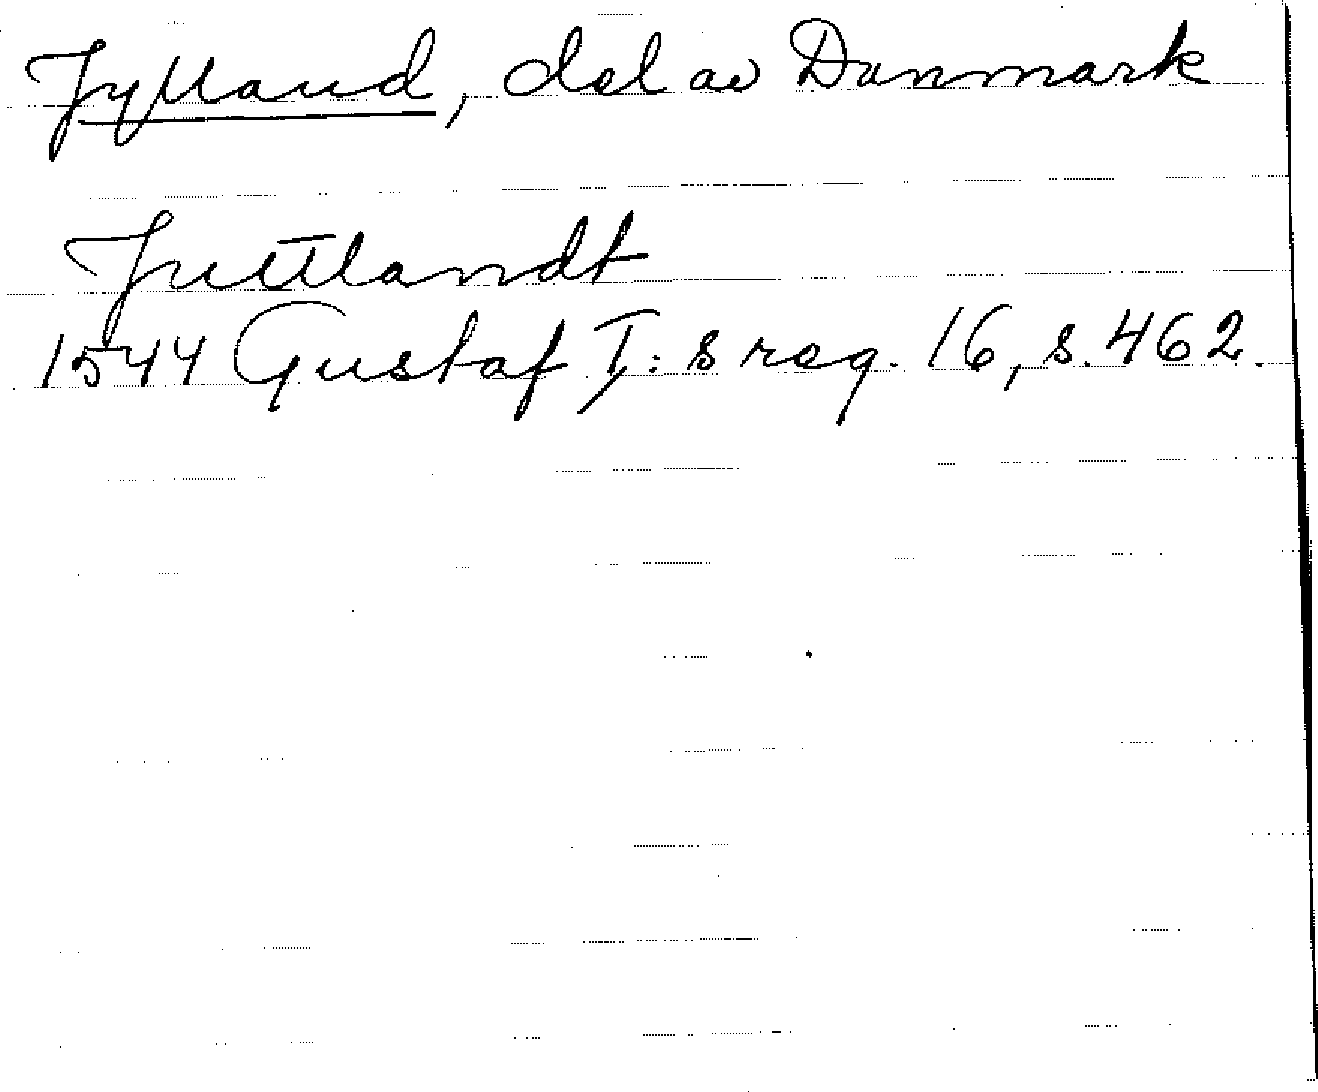 Jylland, del av Danmark
Juttlandt
1544 Gustaf I:s reg. 16, s. 462.